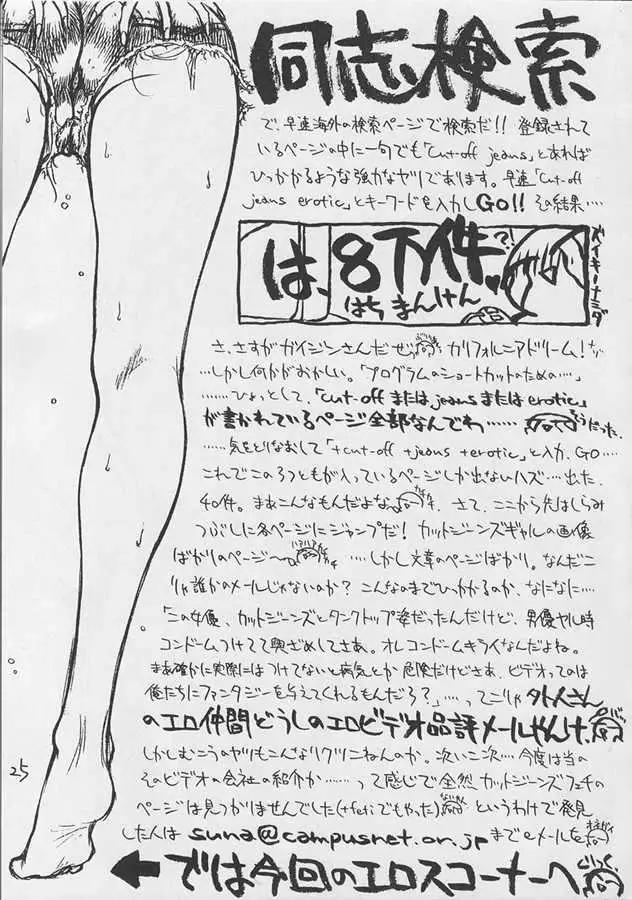 同志検索
で、早速海外の検索ページで検索だ!! 登録されて
いるページの中に一句でも「cut-off jeans」とあれば
ひっかかるような強力なヤリであります。早速「cut-off
jeans erotic」とキーワードを入力しGO!! その結果‥‥
は、8万件?!
はちまんけん
さ、さすがガイジンさんだぜ カリフォルニアドリーム!
‥‥しかし何かがおかしい。「プログラムのショートカットのための‥‥」
‥‥‥ひょっとして、「cut-off または jeans または erotic」
が書かれているページ全部なんでわ‥‥‥ そうだった
‥‥‥気をとりなおして「+cut-off +jeans +erotic」と入力、GO‥‥
これでこの3つともが入っているページしか出ないハズ‥‥出た、
40件。まあこんなもんだよな さて、ここから先はしらみ
つぶしに各ページにジャンプだ! カットジーンズギャルの画像
ばかりのページ〜 ‥‥しかし文章のページばかり。なんだこ
りゃ誰かのメールじゃないのか? こんなのまでひっかかるのか、なになに‥‥
「この女優、カットジーンズとタンクトップ姿だったんだけど、男優ヤル時
コンドームつけてて興ざめしてさあ。オレコンドームキライなんだよね。
まあ確かに実際にはつけてないと病気とか危険だけどさあ、ビデオってのは
俺たちにファンタジーを与えてくれるもんだろ?」‥‥ってこりゃ外人さん
のエロ仲間どうしのエロビデオ品評メールやんけ
しかしむこうのヤリもこんなノリグリこねんのか。次いこ次‥‥今度は当の
そのビデオの会社の紹介か‥‥‥って感じで全然カットジーンズフェチの
ページは見つかりませんでした(+fetiでもやった) というわけで発見
したんは suna@campusnet.or.jp までeメールを
25
←では今回のエロスコーナーへ